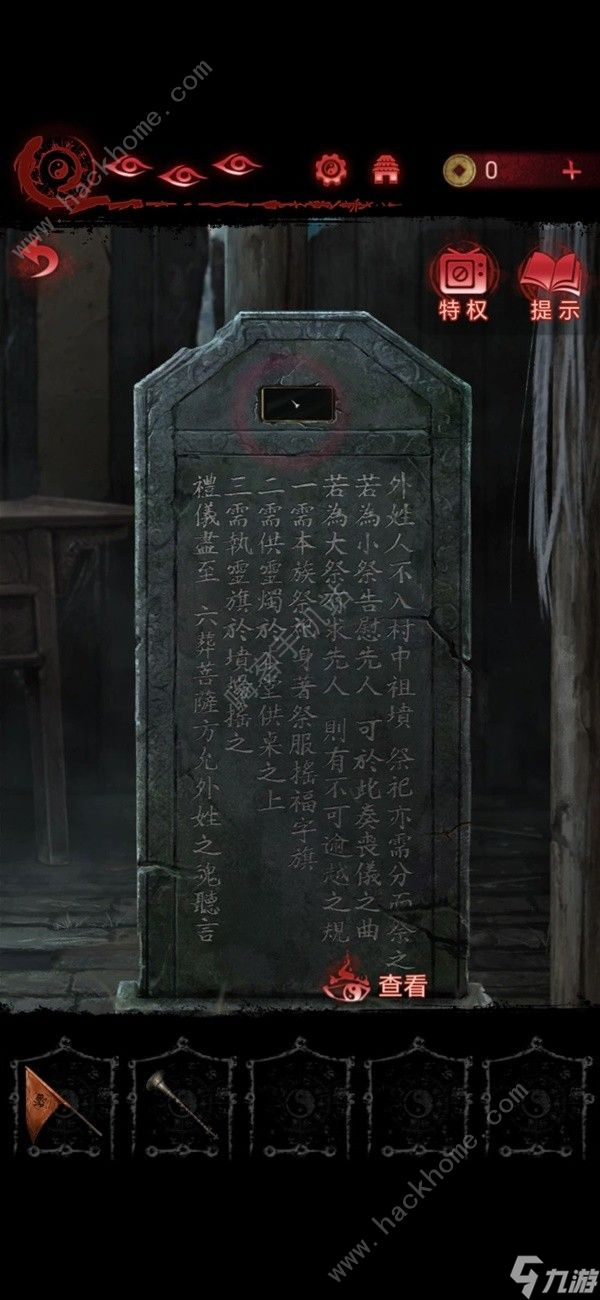 www.hackhome.com
0
特权
提示
外姓人不入村中祖墳 祭祀亦需分而祭之
若為小祭告慰先人 可於此奏喪儀之曲
若為大祭求先人 則有不可逾越之規
一需本族祭祀身著祭服搖福字旗
二需供靈燭於堂供桌之上
三需執靈旗於墳搖之
禮儀盡至 六葬菩薩方允外姓之魂聽言
查看
www.hackhome.com
九游